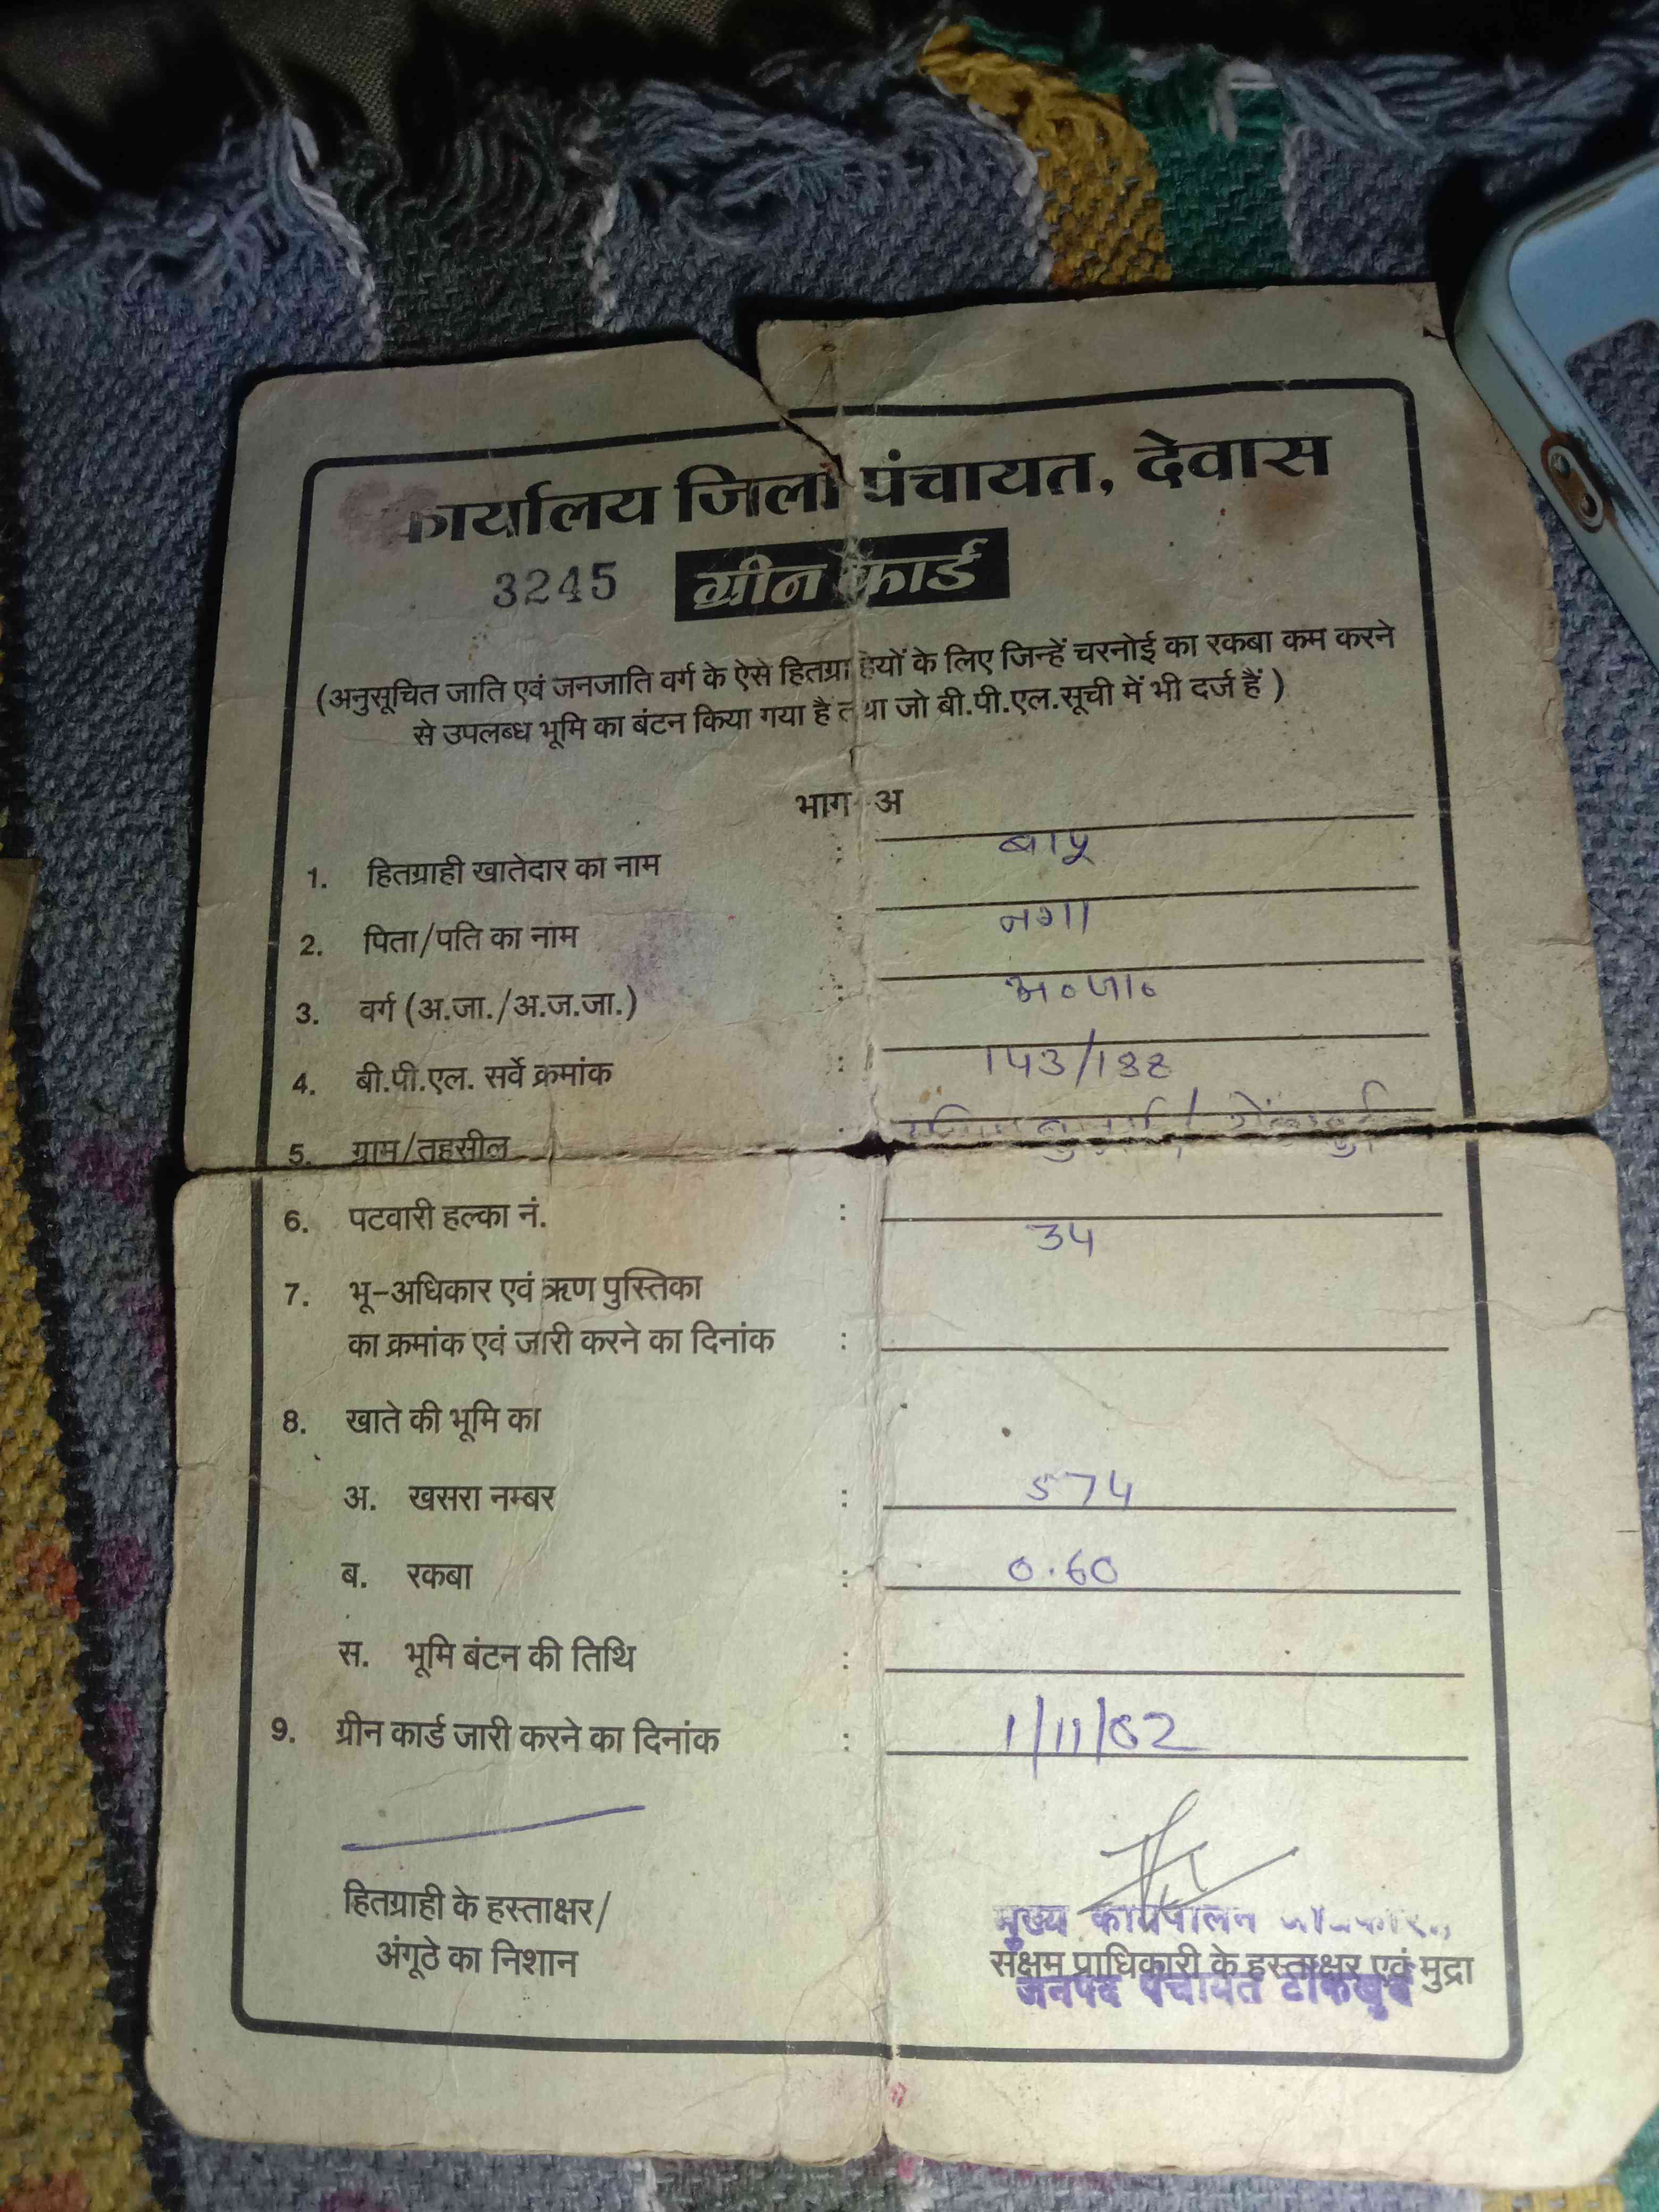 कार्यालय जिला पंचायत, देवास
3245 ग्रीन कार्ड
(अनुसूचित जाति एवं जनजाति वर्ग के ऐसे हितग्राहियों के लिए जिन्हें चरनोई का रकबा कम करने
से उपलब्ध भूमि का बंटन किया गया है तथा जो बी.पी.एल.सूची में भी दर्ज हैं )
भाग अ
1. हितग्राही खातेदार का नाम : बापू
2. पिता/पति का नाम : नगा
3. वर्ग (अ.जा./अ.ज.जा.) : अ०जा०
4. बी.पी.एल. सर्वे क्रमांक : 143/188
5. ग्राम/तहसील :
6. पटवारी हल्का नं. : 34
7. भू-अधिकार एवं ऋण पुस्तिका
का क्रमांक एवं जारी करने का दिनांक :
8. खाते की भूमि का
अ. खसरा नम्बर : 574
ब. रकबा : 0.60
स. भूमि बंटन की तिथि :
9. ग्रीन कार्ड जारी करने का दिनांक : 1/11/02
हितग्राही के हस्ताक्षर/
अंगूठे का निशान
मुख्य कार्यपालन
सक्षम प्राधिकारी के हस्ताक्षर एवं मुद्रा
जनपद पंचायत टोंकखुर्द